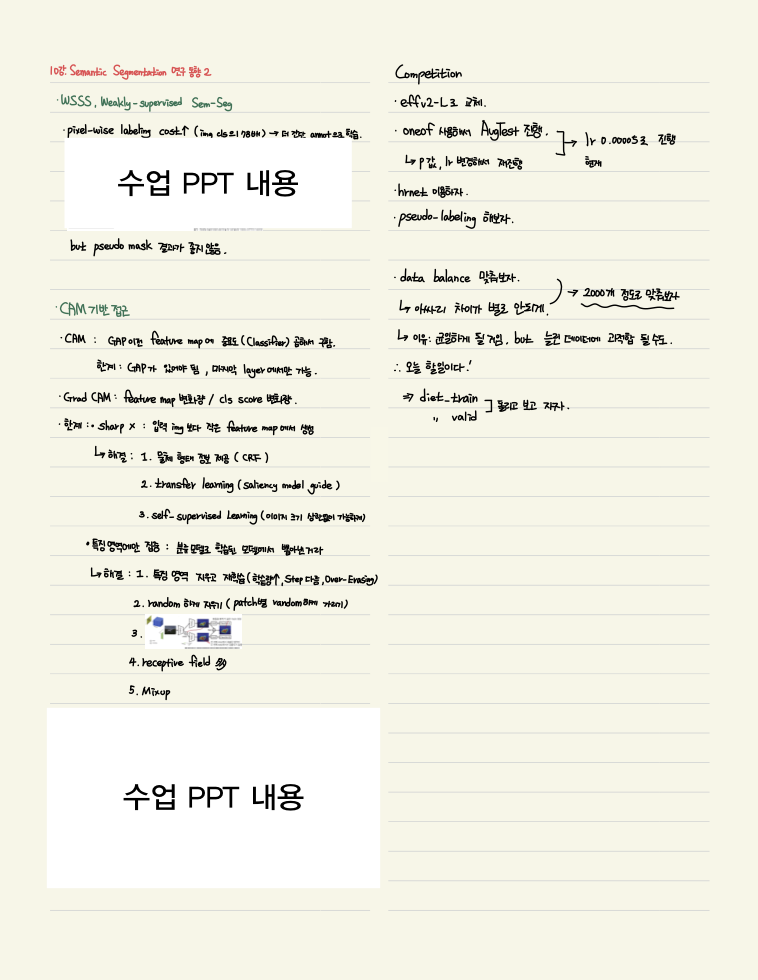 10강. Semantic Segmentation 연구 동향 2
· WSSS, Weakly-supervised Sem-Seg
· pixel-wise labeling cost↑ (img cls의 78배) → 더 간단 annot으로 학습.
수업 PPT 내용
but pseudo mask 결과가 좋지 않음.
· CAM 기반 접근
· CAM : GAP이전 feature map에 중요도(Classifier) 곱해서 구함.
한계 : GAP가 있어야 됨, 마지막 layer에서만 가능.
· Grad CAM : feature map 변화량 / cls score 변화량.
· 한계 : · sharp X : 입력 img 보다 작은 feature map에서 생성
↳ 해결 : 1. 물체 형태 정보 제공 ( CRF )
2. transfer learning ( saliency model guide )
3. self-supervised Learning (이미지 크기 상관없이 가능하게)
· 특징영역에만 집중 : 분류모델로 학습된 모델에서 뽑아낸거라
↳ 해결 : 1. 특징 영역 지우고 재학습 (학습량↑, Step 다음, Over-Erasing)
2. random 하게 지우기 ( patch별 random하게 가리기)
3.
4. receptive field 多
5. Mixup
수업 PPT 내용
Competition
· effv2-L로 교체.
· oneof 사용해서 AugTest 진행. → lr 0.00005로 진행
↳ p값, lr 변경해서 재진행 현재
· hrnet 이용하자.
· pseudo-labeling 해보자.
· data balance 맞춰보자. → 2000개 정도로 맞춰보자
↳ 아싸리 차이가 별로 안되게.
↳ 이유 : 균일하게 될 거임, but 늘린 데이터에 과적합 될 수도.
∴ 오늘 할일이다.!
⇒ diet_train
〃 valid ] 돌리고 보고 자자.